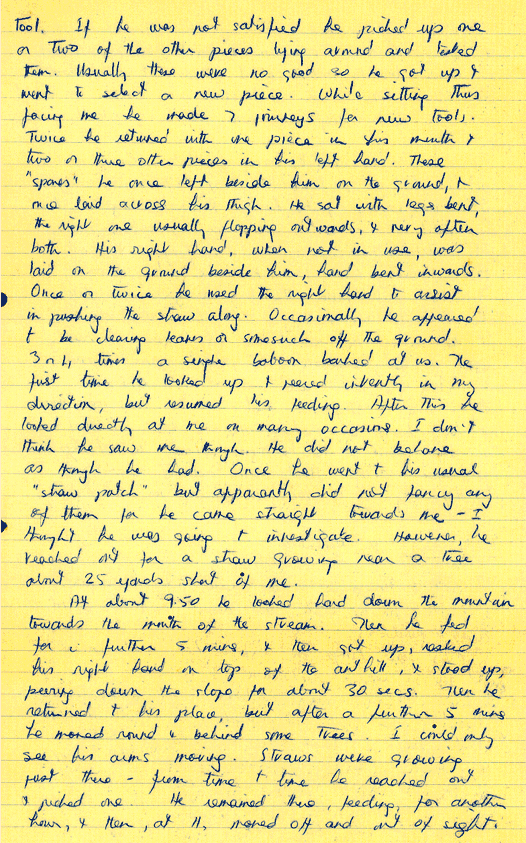 Tool. If he was not satisfied he picked up one
or two of the other pieces lying around and tested
them. Usually these were no good so he got up &
went to select a new piece. While sitting thus
facing me he made 7 journeys for new tools.
Twice he returned with one piece in his mouth &
two or three other pieces in his left hand. These
"spares" he once left beside him on the ground, &
once laid across his thigh. He sat with legs bent,
the right one usually flopping outwards, & very often
both. His right hand, when not in use, was
laid on the ground beside him, hand bent inwards.
Once or twice he used the right hand to assist
in pushing the straw along. Occasionally he appeared
t be clearing leaves or somesuch off the ground.
3 or 4 times a single baboon barked at us. The
first time he looked up & peered intently in my
direction, but resumed his feeding. After this he
looked directly at me on many occasions. I don't
think he saw me though. He did not behave
as though he had. Once he went t his usual
"straw patch" but apparantly did not fancy any
of them for he came straight towards me - I
thought he was going t investigate. However, he
reached out for a straw growing near a tree
about 25 yards short of me.
At about 9.50 he looked hard down the mountain
towards the mouth of the stream. Then he fed
for a further 5 mins, & then got up, rested
his right hand on top of the ant hill, & stood up,
peering down the slope for about 30 secs. Then he
returned t his place, but after a further 5 mins
he moved round & behind some trees. I could only
see his arms moving. Straws were growing
just there - from time t time he reached out
& picked one. He remained there, feeding, for another
hour, & then, at 11, moved off and out of sight.